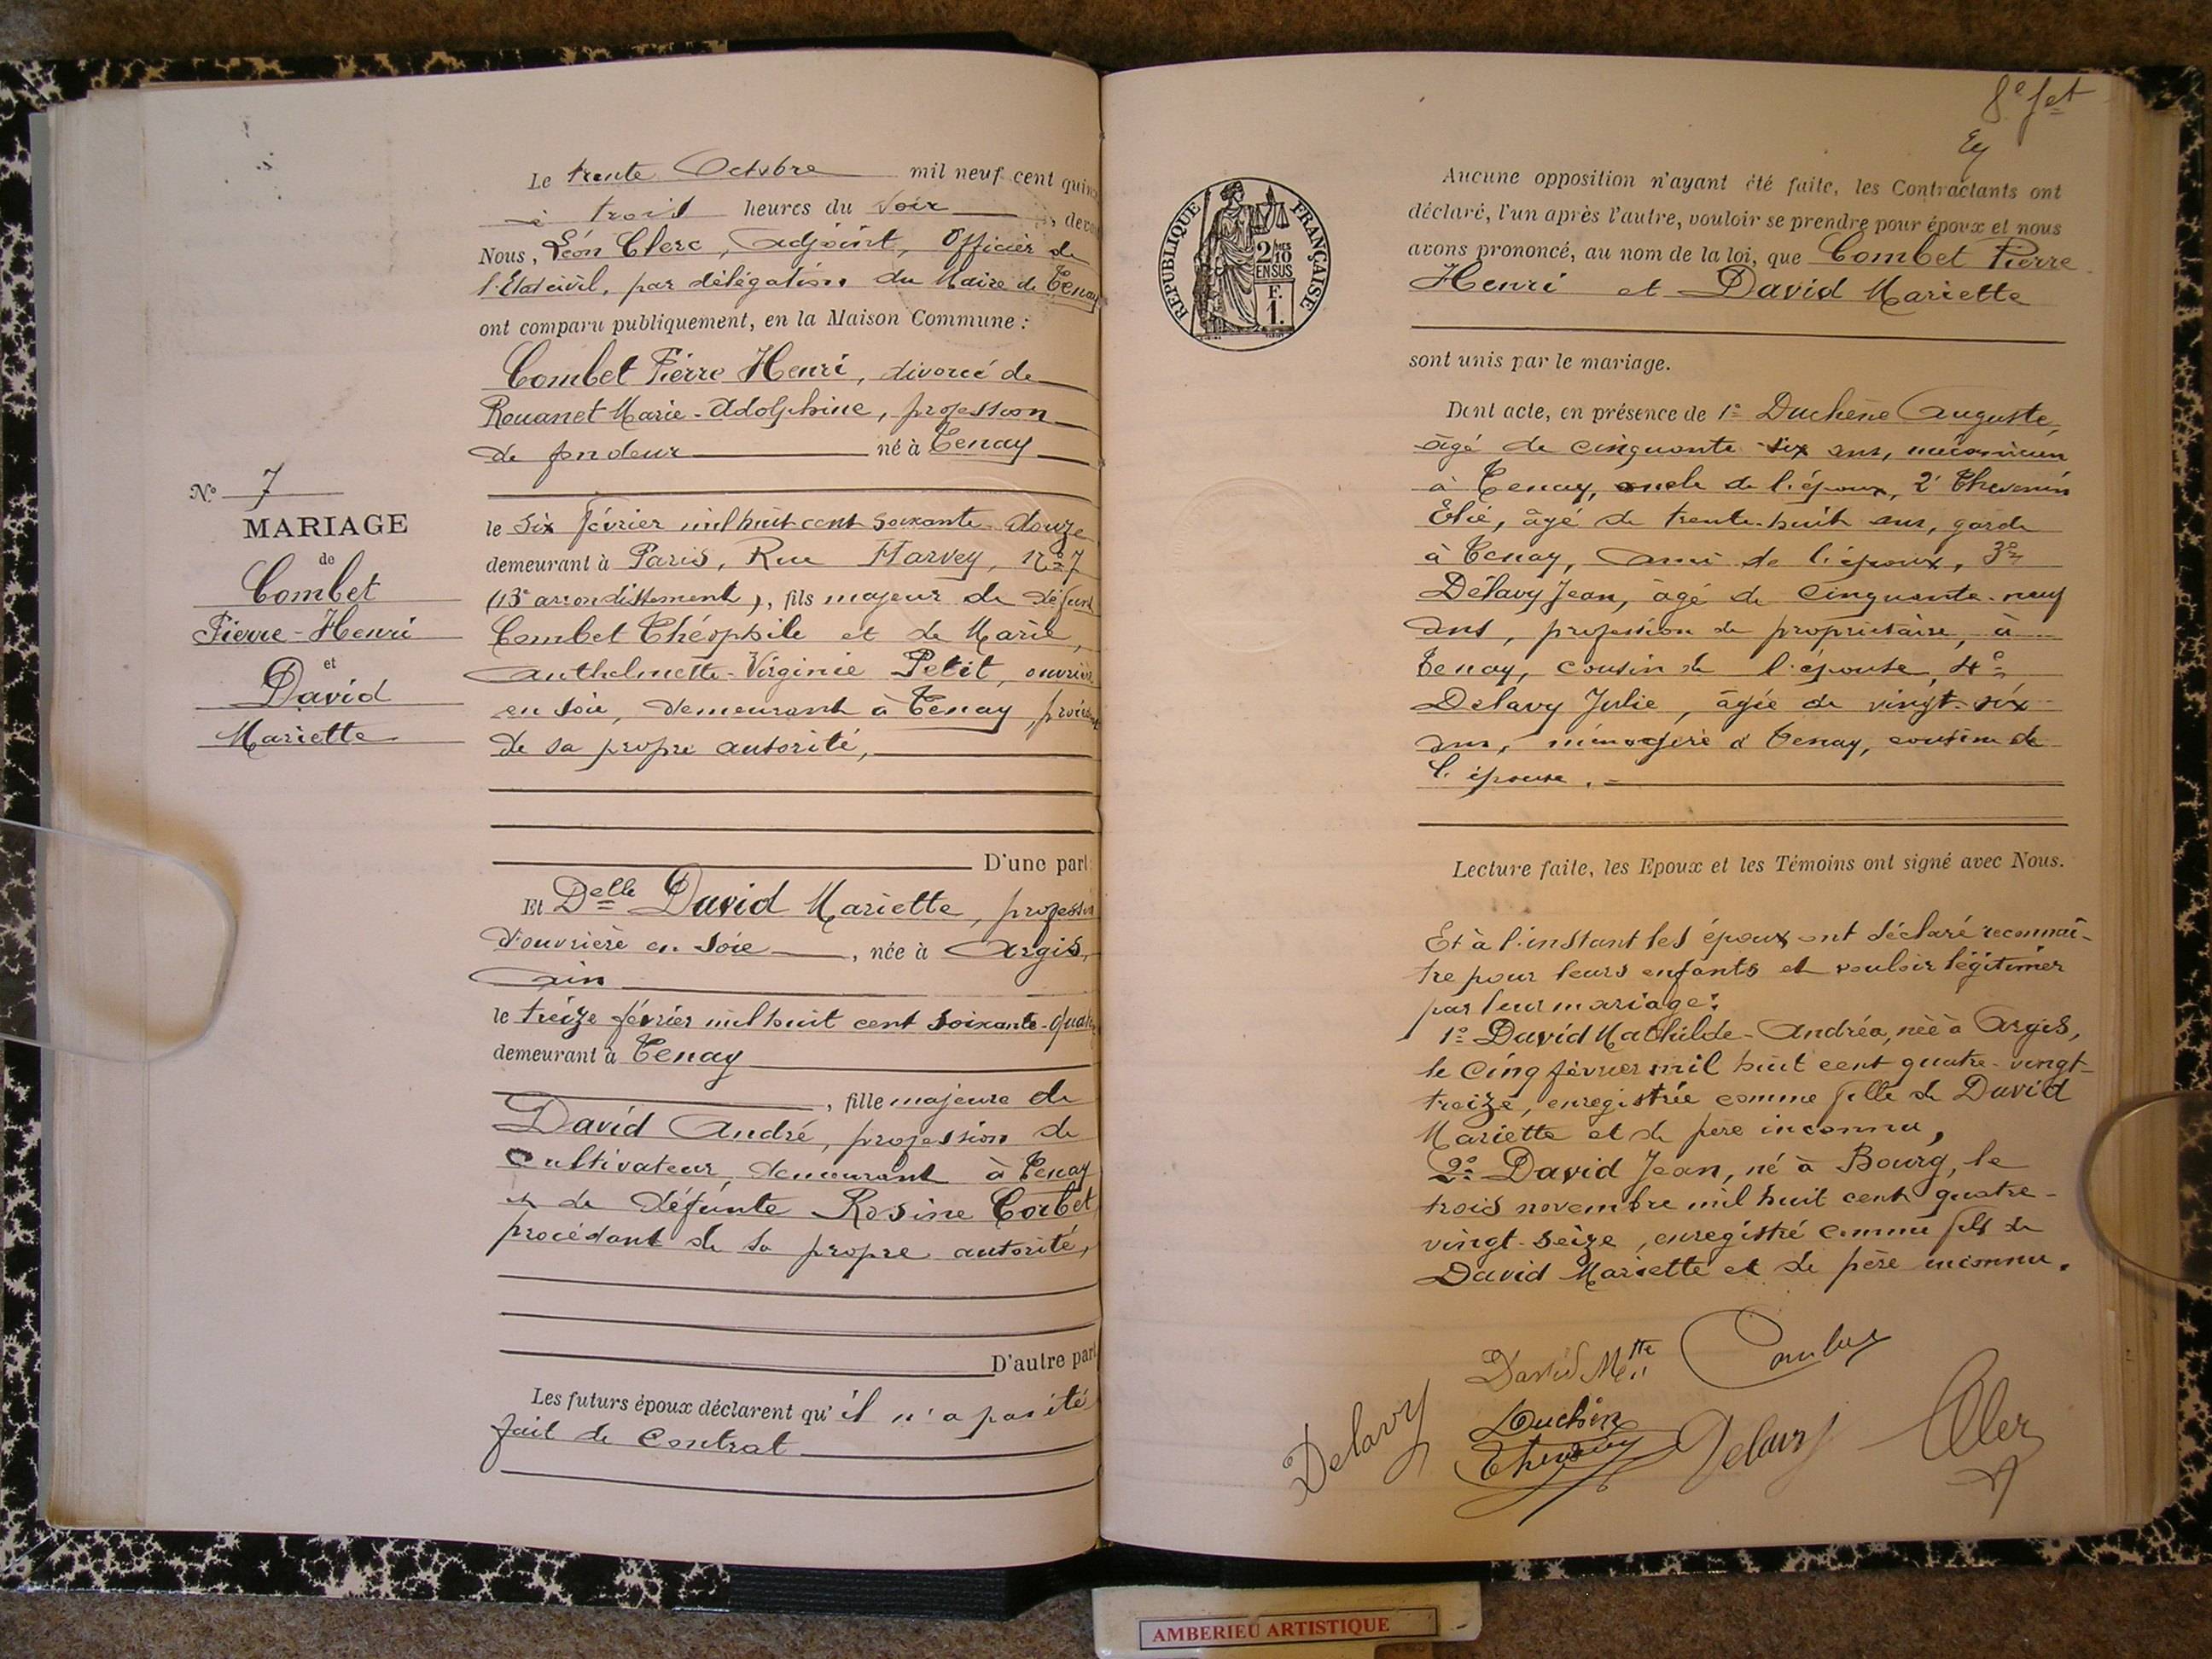 Le trente Octobre mil neuf cent quin
à trois heures du soir devo
Nous, Léon Clerc, adjoint, Officier de
l'Etat civil, par délégation du Maire de Tenay
ont comparu publiquement, en la Maison Commune :
Combet Pierre Henri, divorcé de
Rouanet Marie-Adolphine, profession
de fondeur né à Tenay
le six février mil huit cent soixante-douze
demeurant à Paris, Rue Harvey, N° 7
(13e arrondissement), fils majeur de défunt
Combet Théophile et de Marie,
Anthelmette-Virginie Petit, ouvrière
en soie, demeurant à Tenay, procédant
de sa propre autorité,
D'une part
Et Delle David Mariette, profession
d'ouvrière en soie, née à Argis,
Ain
le treize février mil huit cent soixante-quat
demeurant à Tenay
, fille majeure de
David André, profession de
Cultivateur, demeurant à Tenay
et de défunte Rosine Corbet
procédant de sa propre autorité,
D'autre part
Les futurs époux déclarent qu'il n'a pas été
fait de Contrat
N° 7
MARIAGE
de
Combet
Pierre-Henri
et
David
Mariette
8e fet
RÉPUBLIQUE FRANÇAISE
2/10
EN SUS
F.
1.
Aucune opposition n'ayant été faite, les Contractants ont
déclaré, l'un après l'autre, vouloir se prendre pour époux et nous
avons prononcé, au nom de la loi, que Combet Pierre
Henri et David Mariette
sont unis par le mariage.
Dont acte, en présence de 1° Duchêne Auguste,
âgé de cinquante-six ans, mécanicien
à Tenay, oncle de l'époux, 2° Thevenin
Elié, âgé de trente-huit ans, garde
à Tenay, ami de l'époux, 3°
Délavy Jean, âgé de Cinquante-neuf
ans, profession de propriétaire, à
Tenay, cousin de l'épouse, 4°
Delavy Julie, âgée de vingt-six
ans, ménagère à Tenay, cousine de
l'épouse.
Lecture faite, les Epoux et les Témoins ont signé avec Nous.
Et à l'instant les époux ont déclaré reconnaî-
tre pour leurs enfants et vouloir légitimer
par leur mariage :
1° David Mathilde-Andréa, née à Argis,
le Cinq février mil huit cent quatre-vingt-
treize, enregistrée comme fille de David
Mariette et de père inconnu,
2° David Jean, né à Bourg, le
trois novembre mil huit cent quatre-
vingt-seize, enregistré comme fils de
David Mariette et de père inconnu.
David Mtte Combet
Delavy Duchêne
Delavy Clerc
AMBERIEU ARTISTIQUE